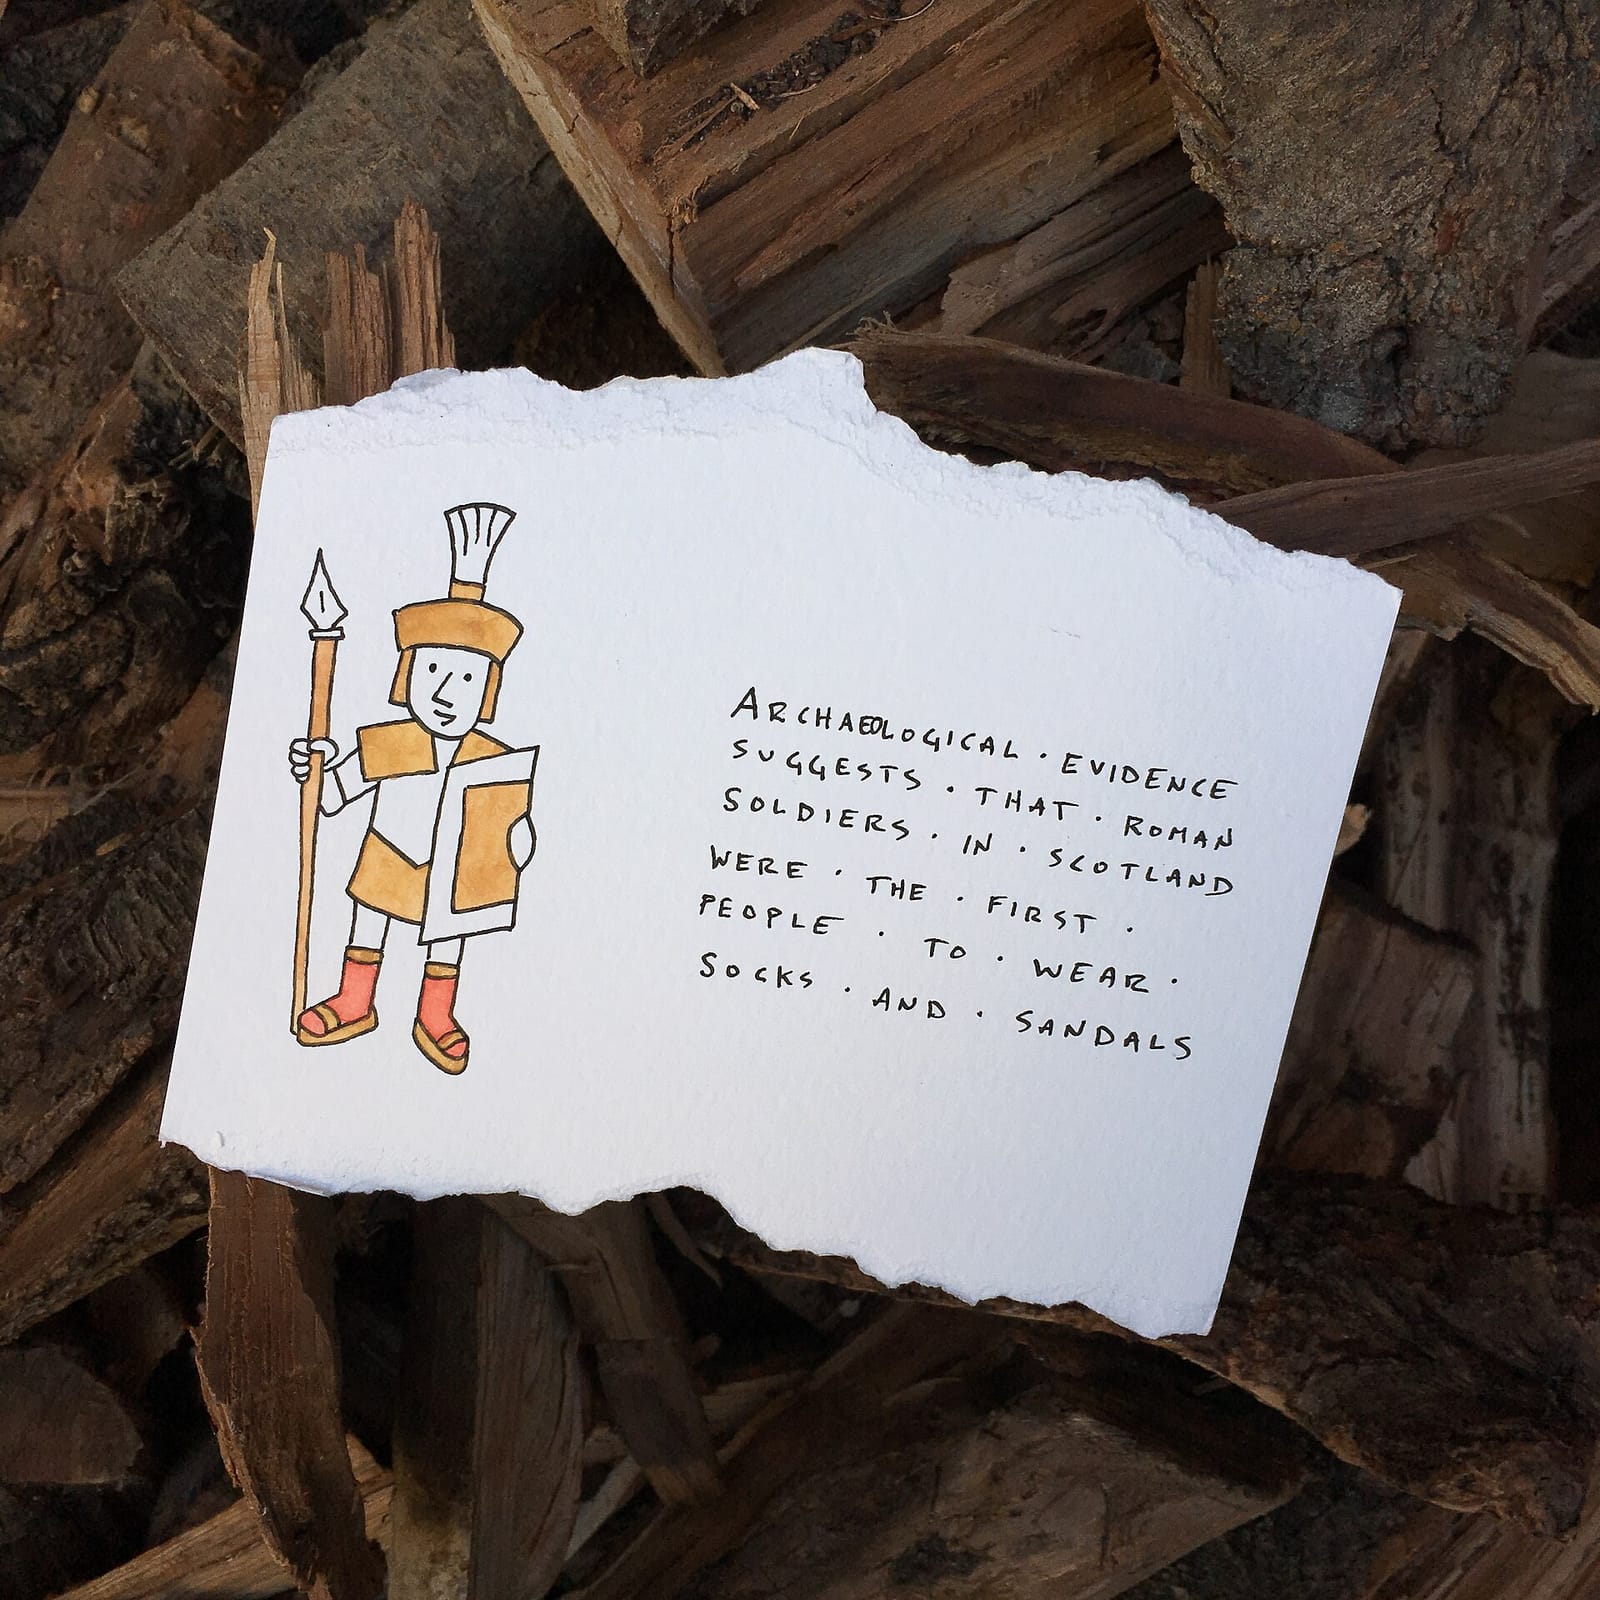 ARCHAEOLOGICAL · EVIDENCE
SUGGESTS · THAT · ROMAN
SOLDIERS · IN · SCOTLAND
WERE · THE · FIRST ·
PEOPLE · TO · WEAR ·
SOCKS · AND · SANDALS